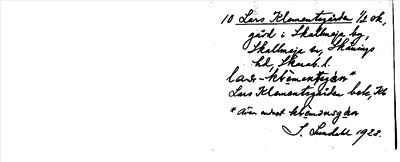 10 Lars Klementsgården 1/2 ok,
gård i Skallmeja by,
Skallmeja sn, Skånings
hd, Skarab. l.
la·s-klementsgån*
Lars Klementsgården bebe, Kb
* Även endast klemænsgån
S. Lundahl 1928.